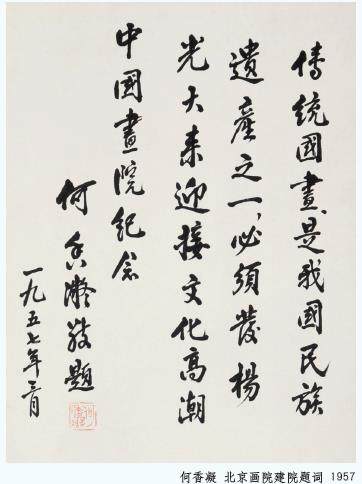 傳統國畫是我國民族
遺產之一,必須發揚
光大来迎接文化高潮
中國畫院紀念
何香凝敬題
一九五七年三月
何香凝 北京画院建院题词 1957